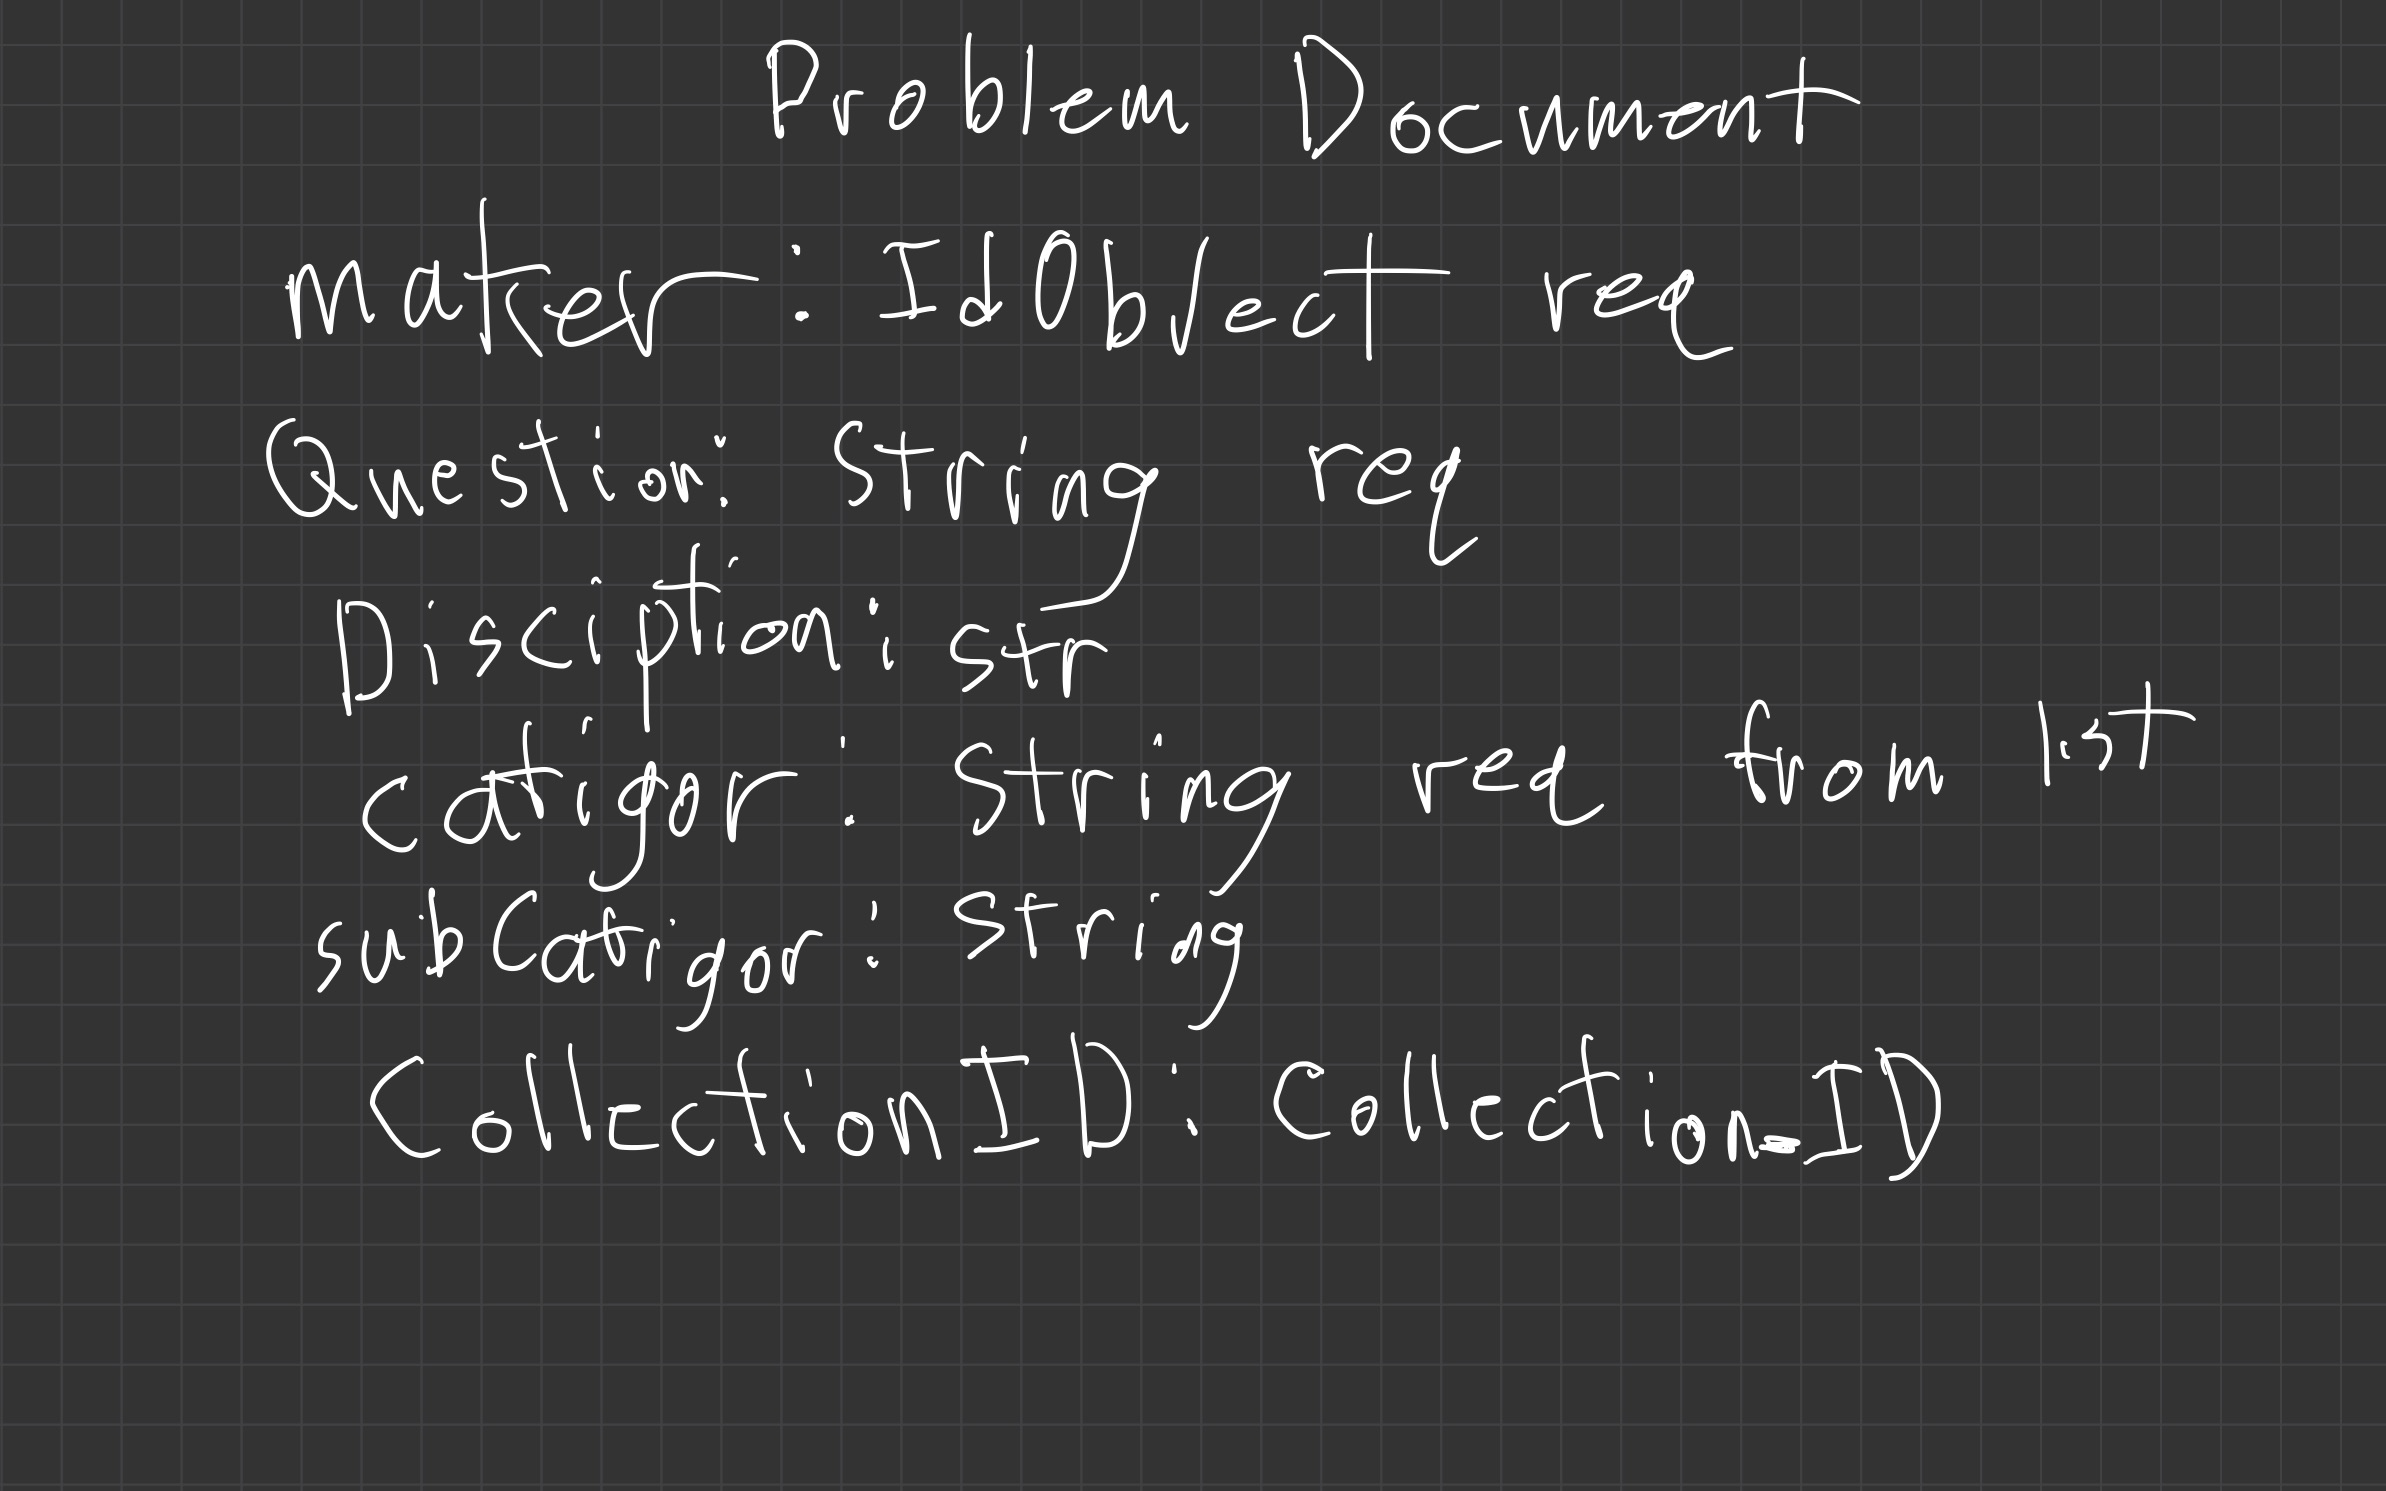 Problem Document
maker : IdObject req
Question: String req
Disciption: str
catigor : String req from list
subCatigor : String
CollectionID: Collection_ID